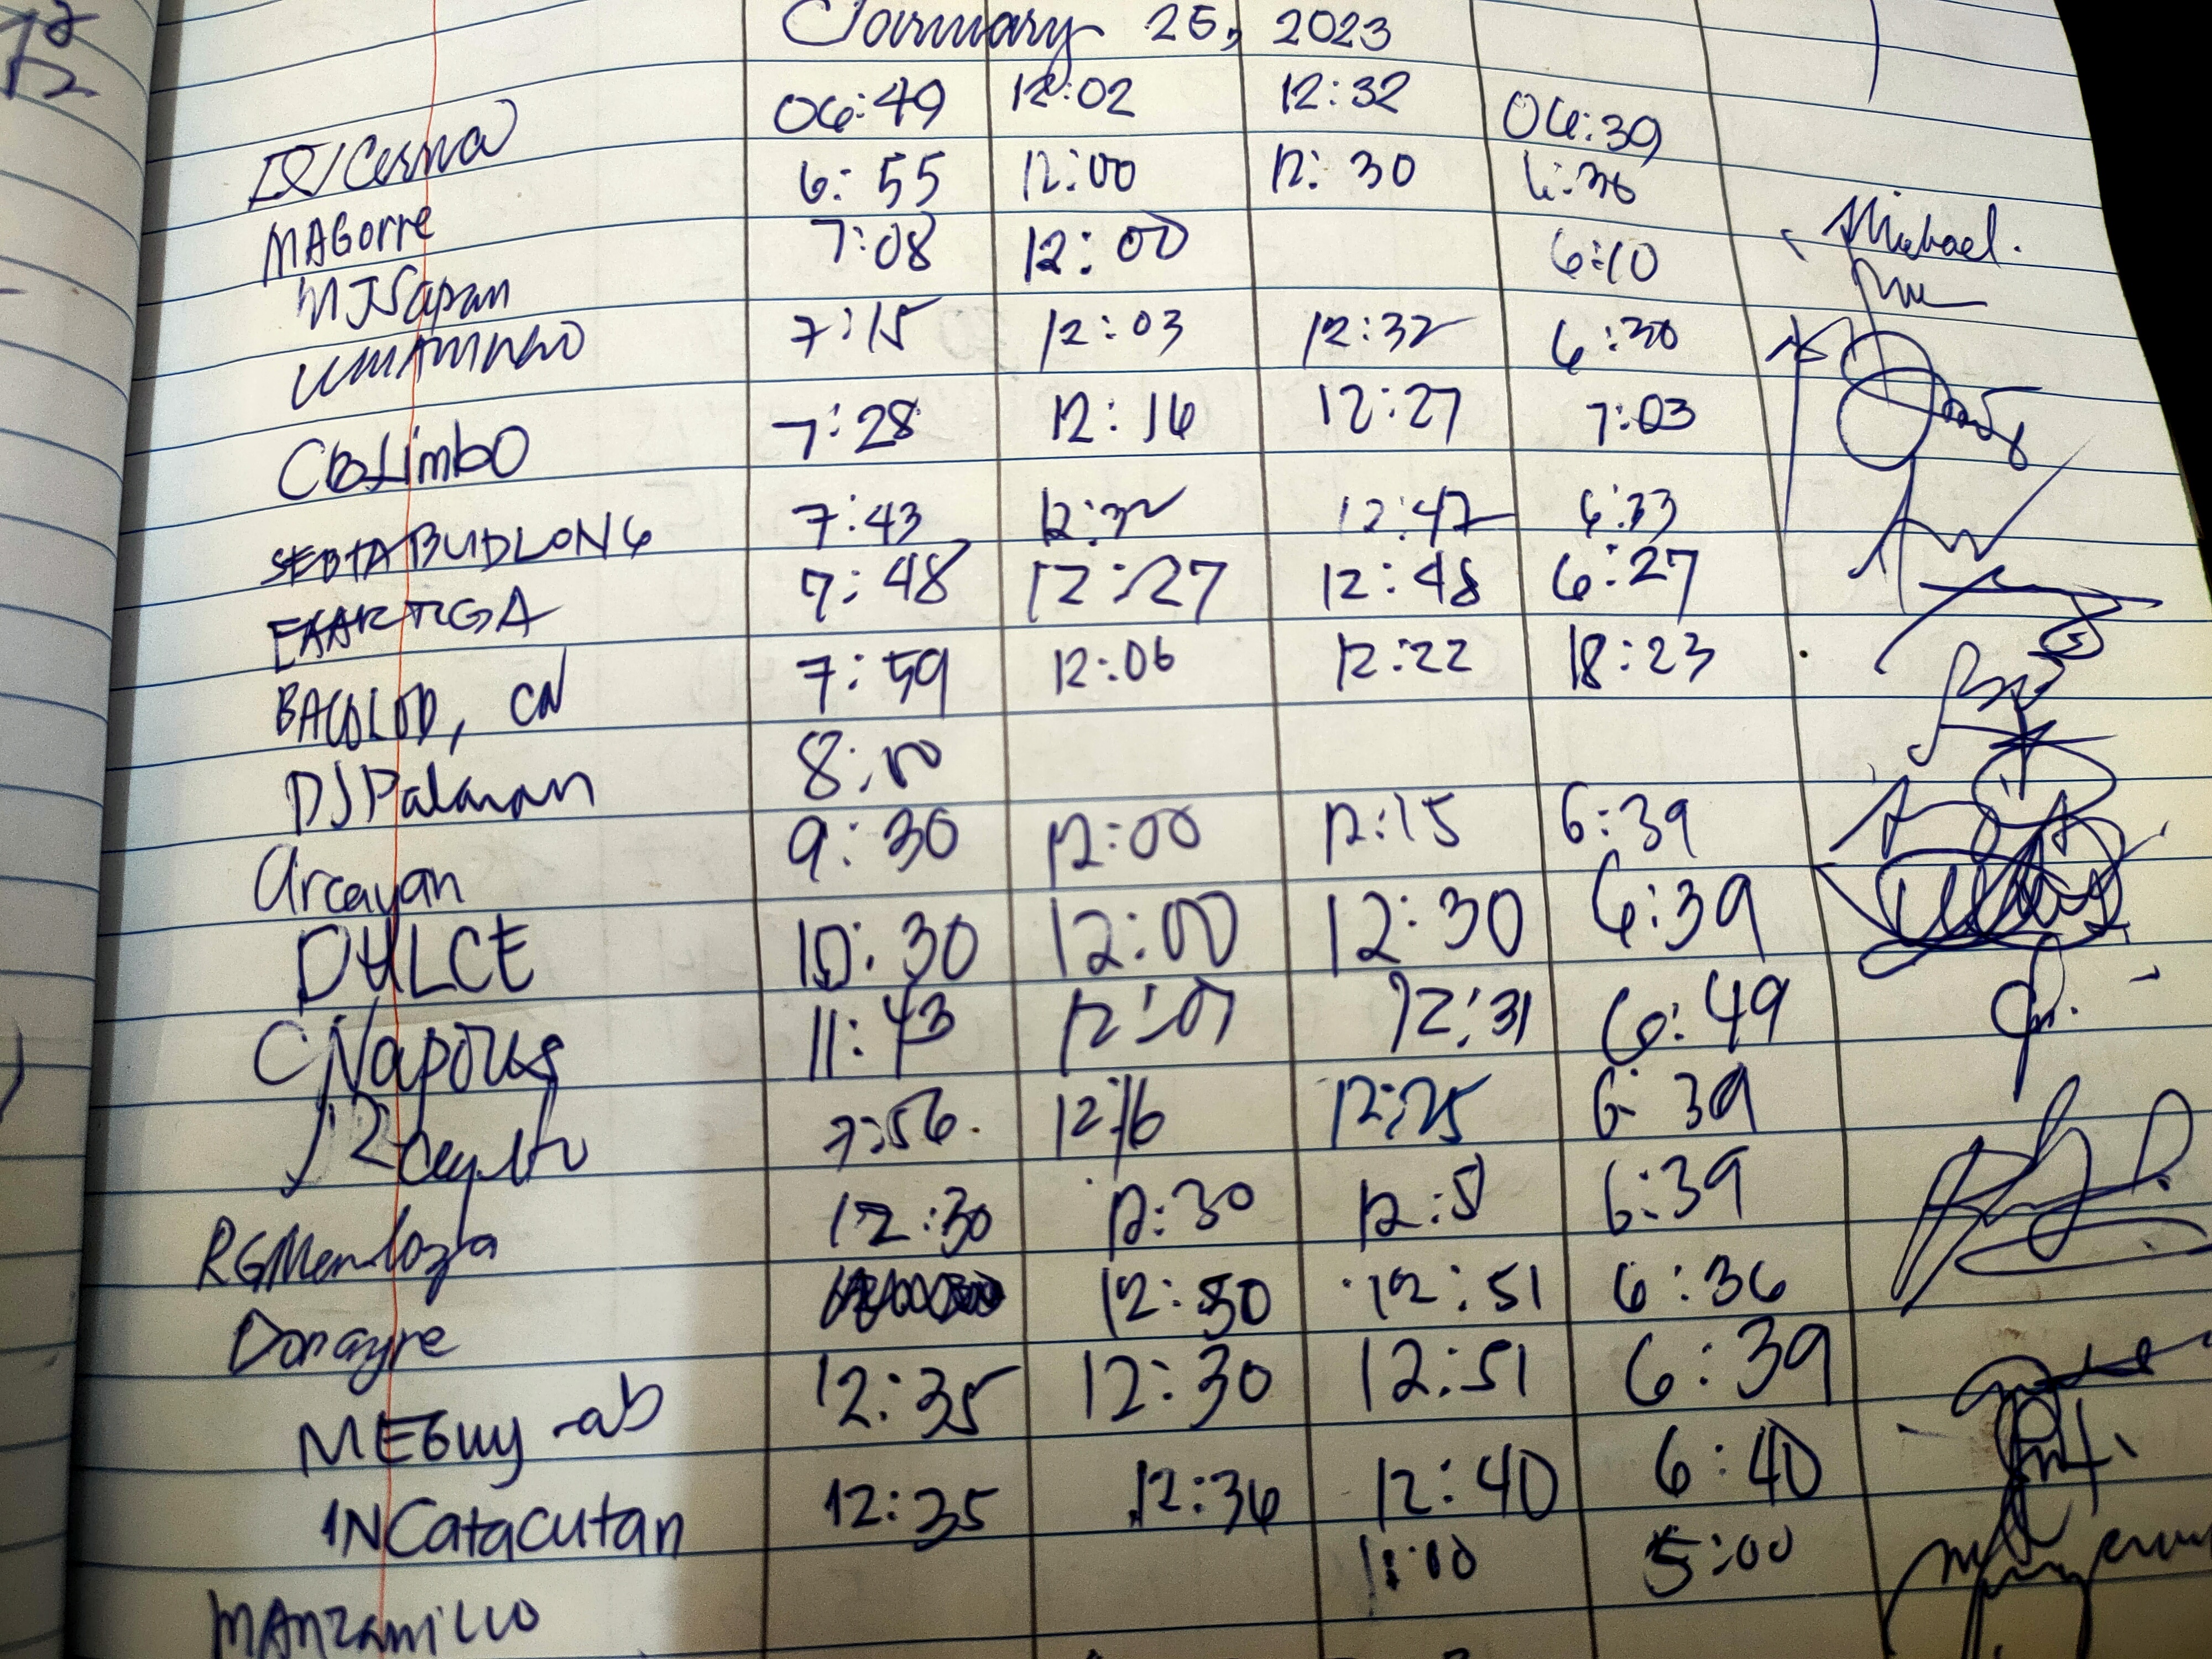 January 25, 2023
06:49 12:02 12:32 06:39
Cerna 6:55 12:00 12:30 6:36
MAGorre 7:08 12:00 6:10 Michael.
MJSapan 7:15 12:03 12:32 6:30
7:28 12:16 12:27 7:03
CBLimbo 7:43 12:32 12:47 6:33
BUDLONG 7:48 12:27 12:48 6:27
7:59 12:06 12:22 18:23
BACOLOD, CN 8:00
DJPalaran 9:30 12:00 12:15 6:39
Arcayan 10:30 12:00 12:30 6:39
DULCE 11:43 12:07 12:31 6:49
CNapoles 7:56 12:16 12:25 6:39
12:30 12:30 12:51 6:39
RGMendoza 12:50 12:51 6:36
Donayre 12:35 12:30 12:51 6:39
MEGuy-ab 12:35 12:36 12:40 6:40
INCatacutan 1:00 5:00
MAnzanillo